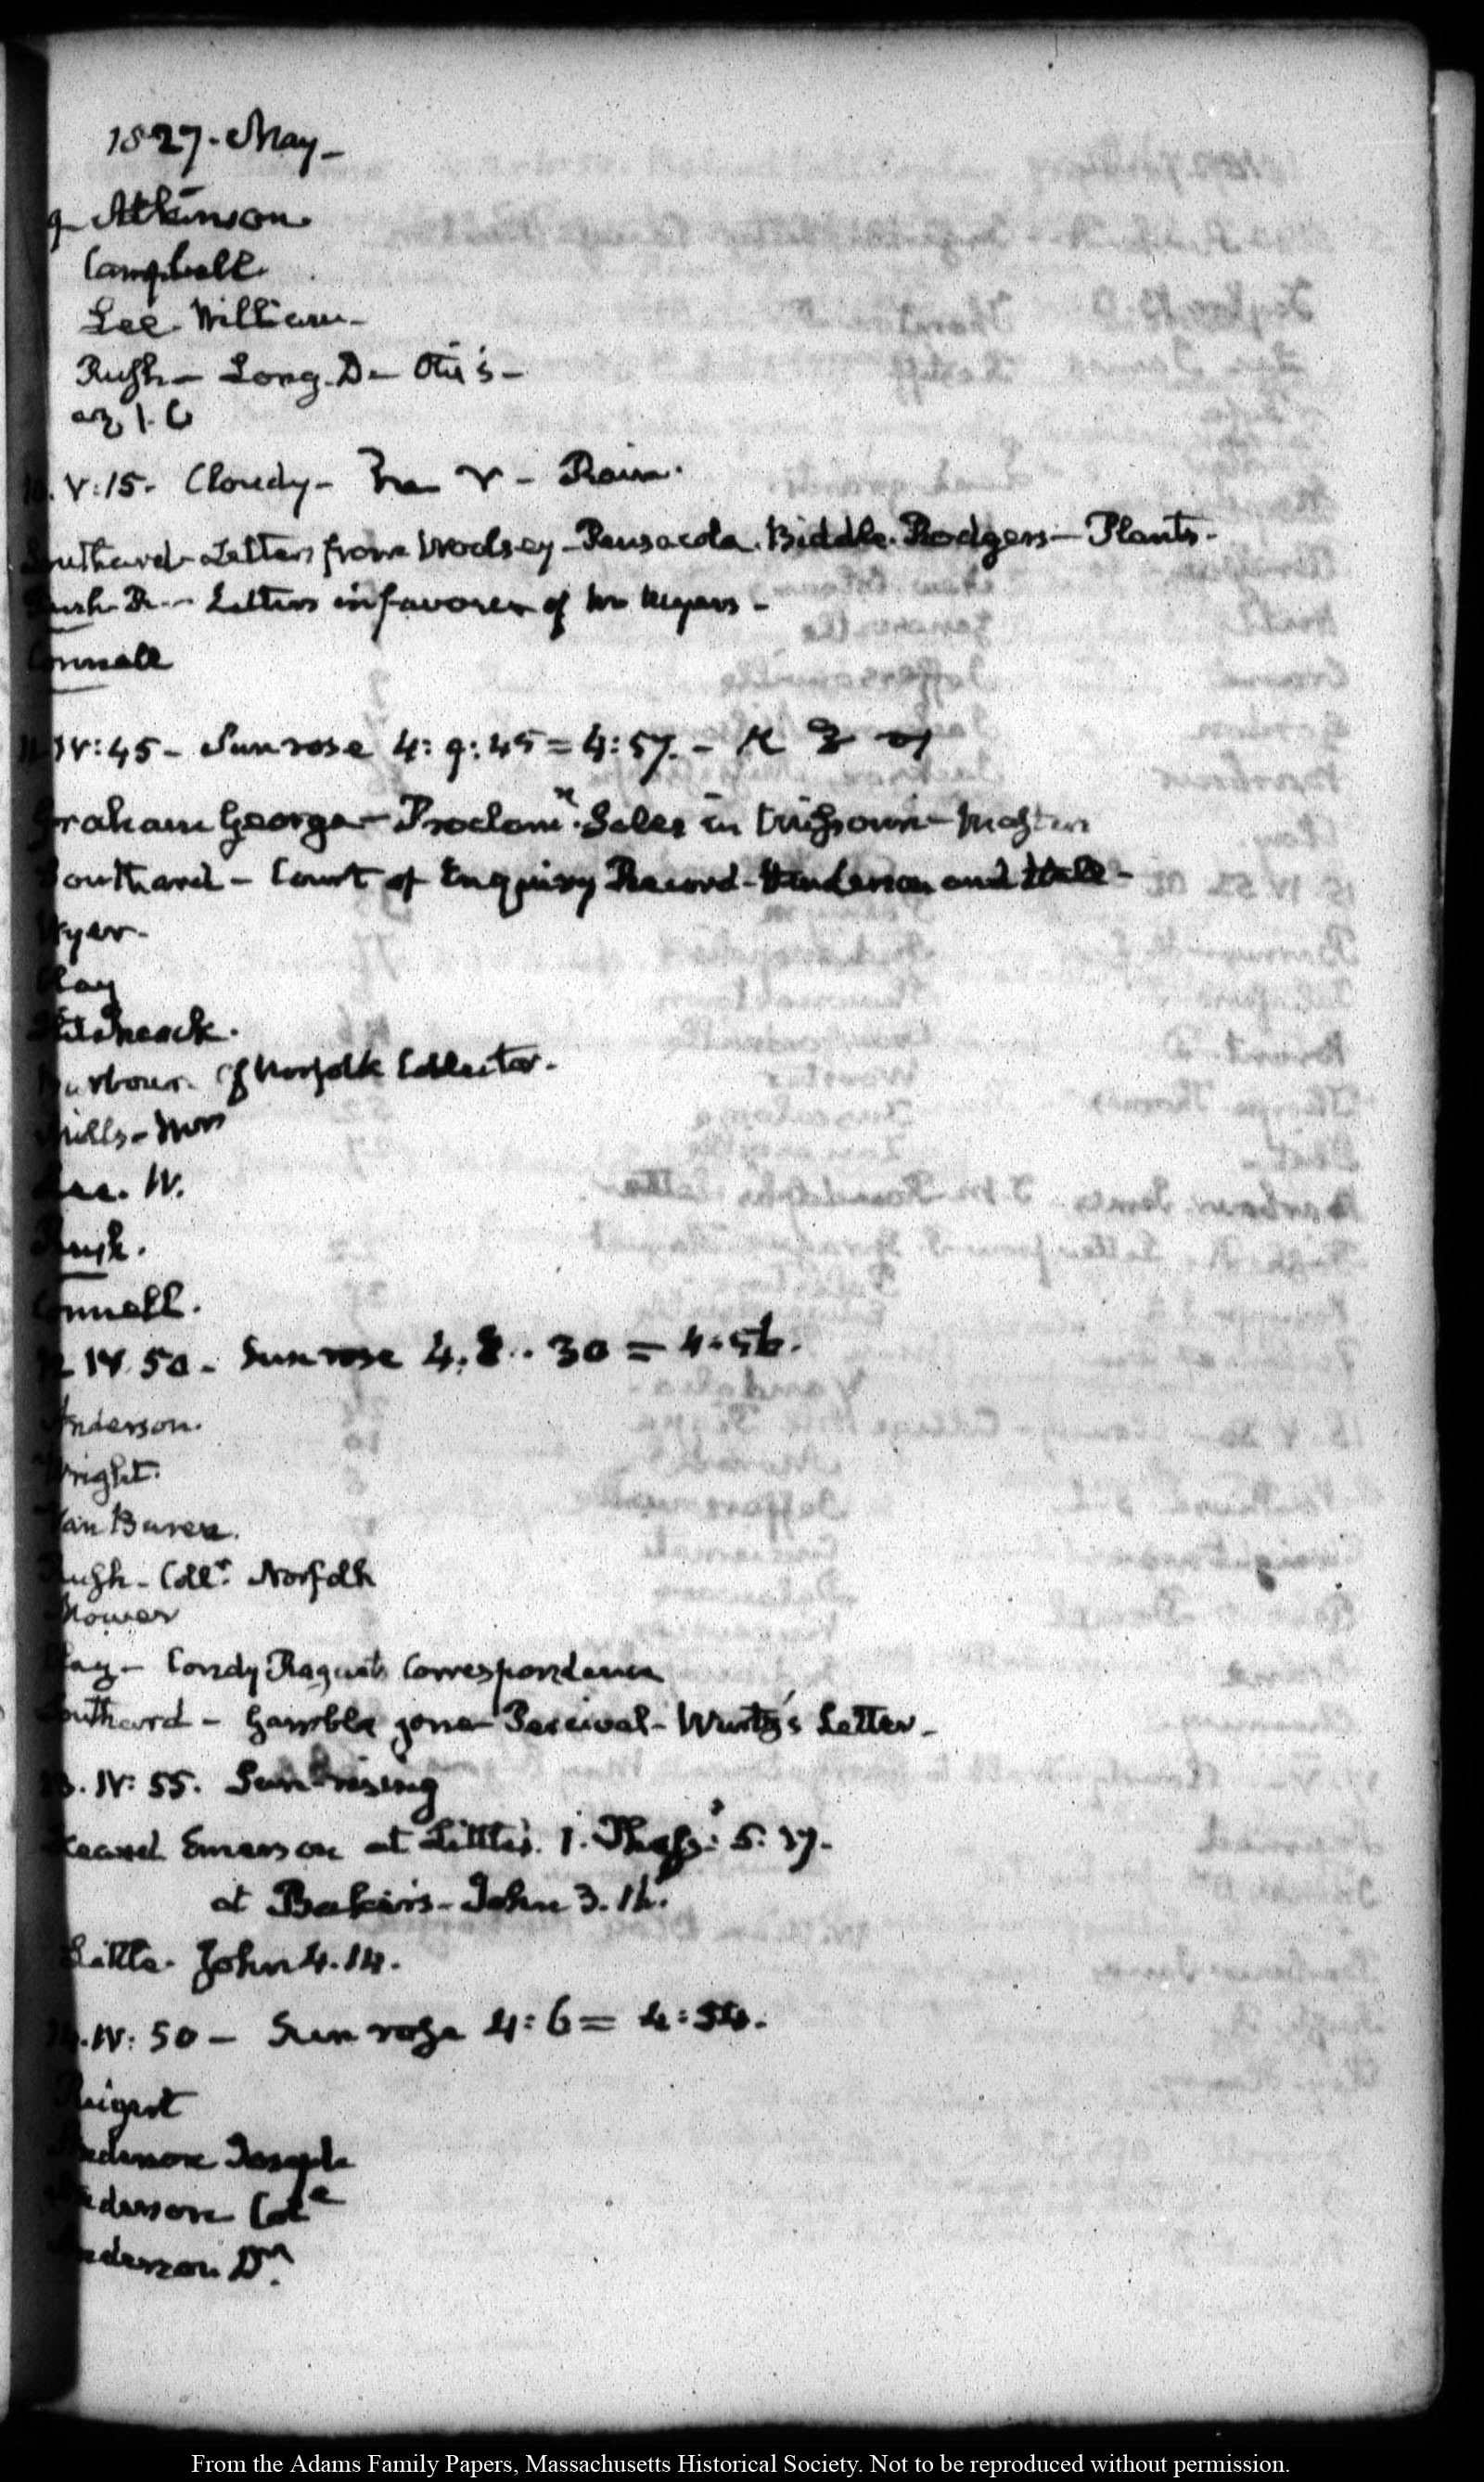 1827. May_
9 Atkinson.
Campbell.
Lee. William_
Rush_ Long. D_ Otis's_
10. V:15. Cloudy_ V_ Rain.
Southard_ Letters from Woolsey_Pensacola. Biddle. Rodgers_ Plants_
Rush R_ Letters in favour of Mr Myers_
Connell
11. IV:45_ Sun rose 4:9:45=4:57._
Graham George_ Proclamn. Sales in
Southard_ Court of Enquiry Record_ Henderson and Hall_
Wyer_
Clay
Hitchcock.
Barbour. Norfolk Collector.
Mills_
Lee. W.
Rush.
Connell.
12 IV. 50_ Sun rose 4.8..30=4:56.
Anderson.
Wright.
Van Buren.
Rush_ Collr. Norfolk
Mower
Clay_ Condy Raguet's Correspondence
Southard_ Gamble gone_ Percival_ Letter_
13. IV:55. Sun rising
Heard Emerson at Little's. 1. Thess: 5. 17.
at Baker's_ John 3. 16.
Little. John 4.14.
14. IV:50_ Sun rose 4:6=4:54.
Anderson Joseph
Anderson
Anderson Dr.
From the Adams Family Papers, Massachusetts Historical Society. Not to be reproduced without permission.